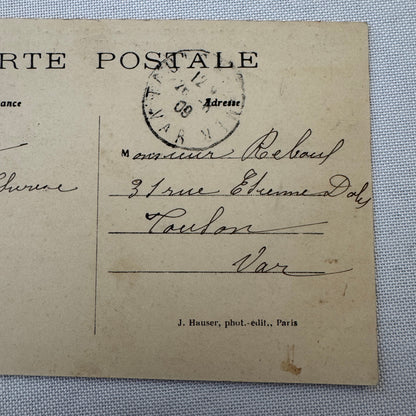 RTE POSTALE
ance
Adresse
12
09
VAR
Monsieur Reboul
31 rue Etienne Dolet
Toulon
Var
J. Hauser, phot.-édit., Paris